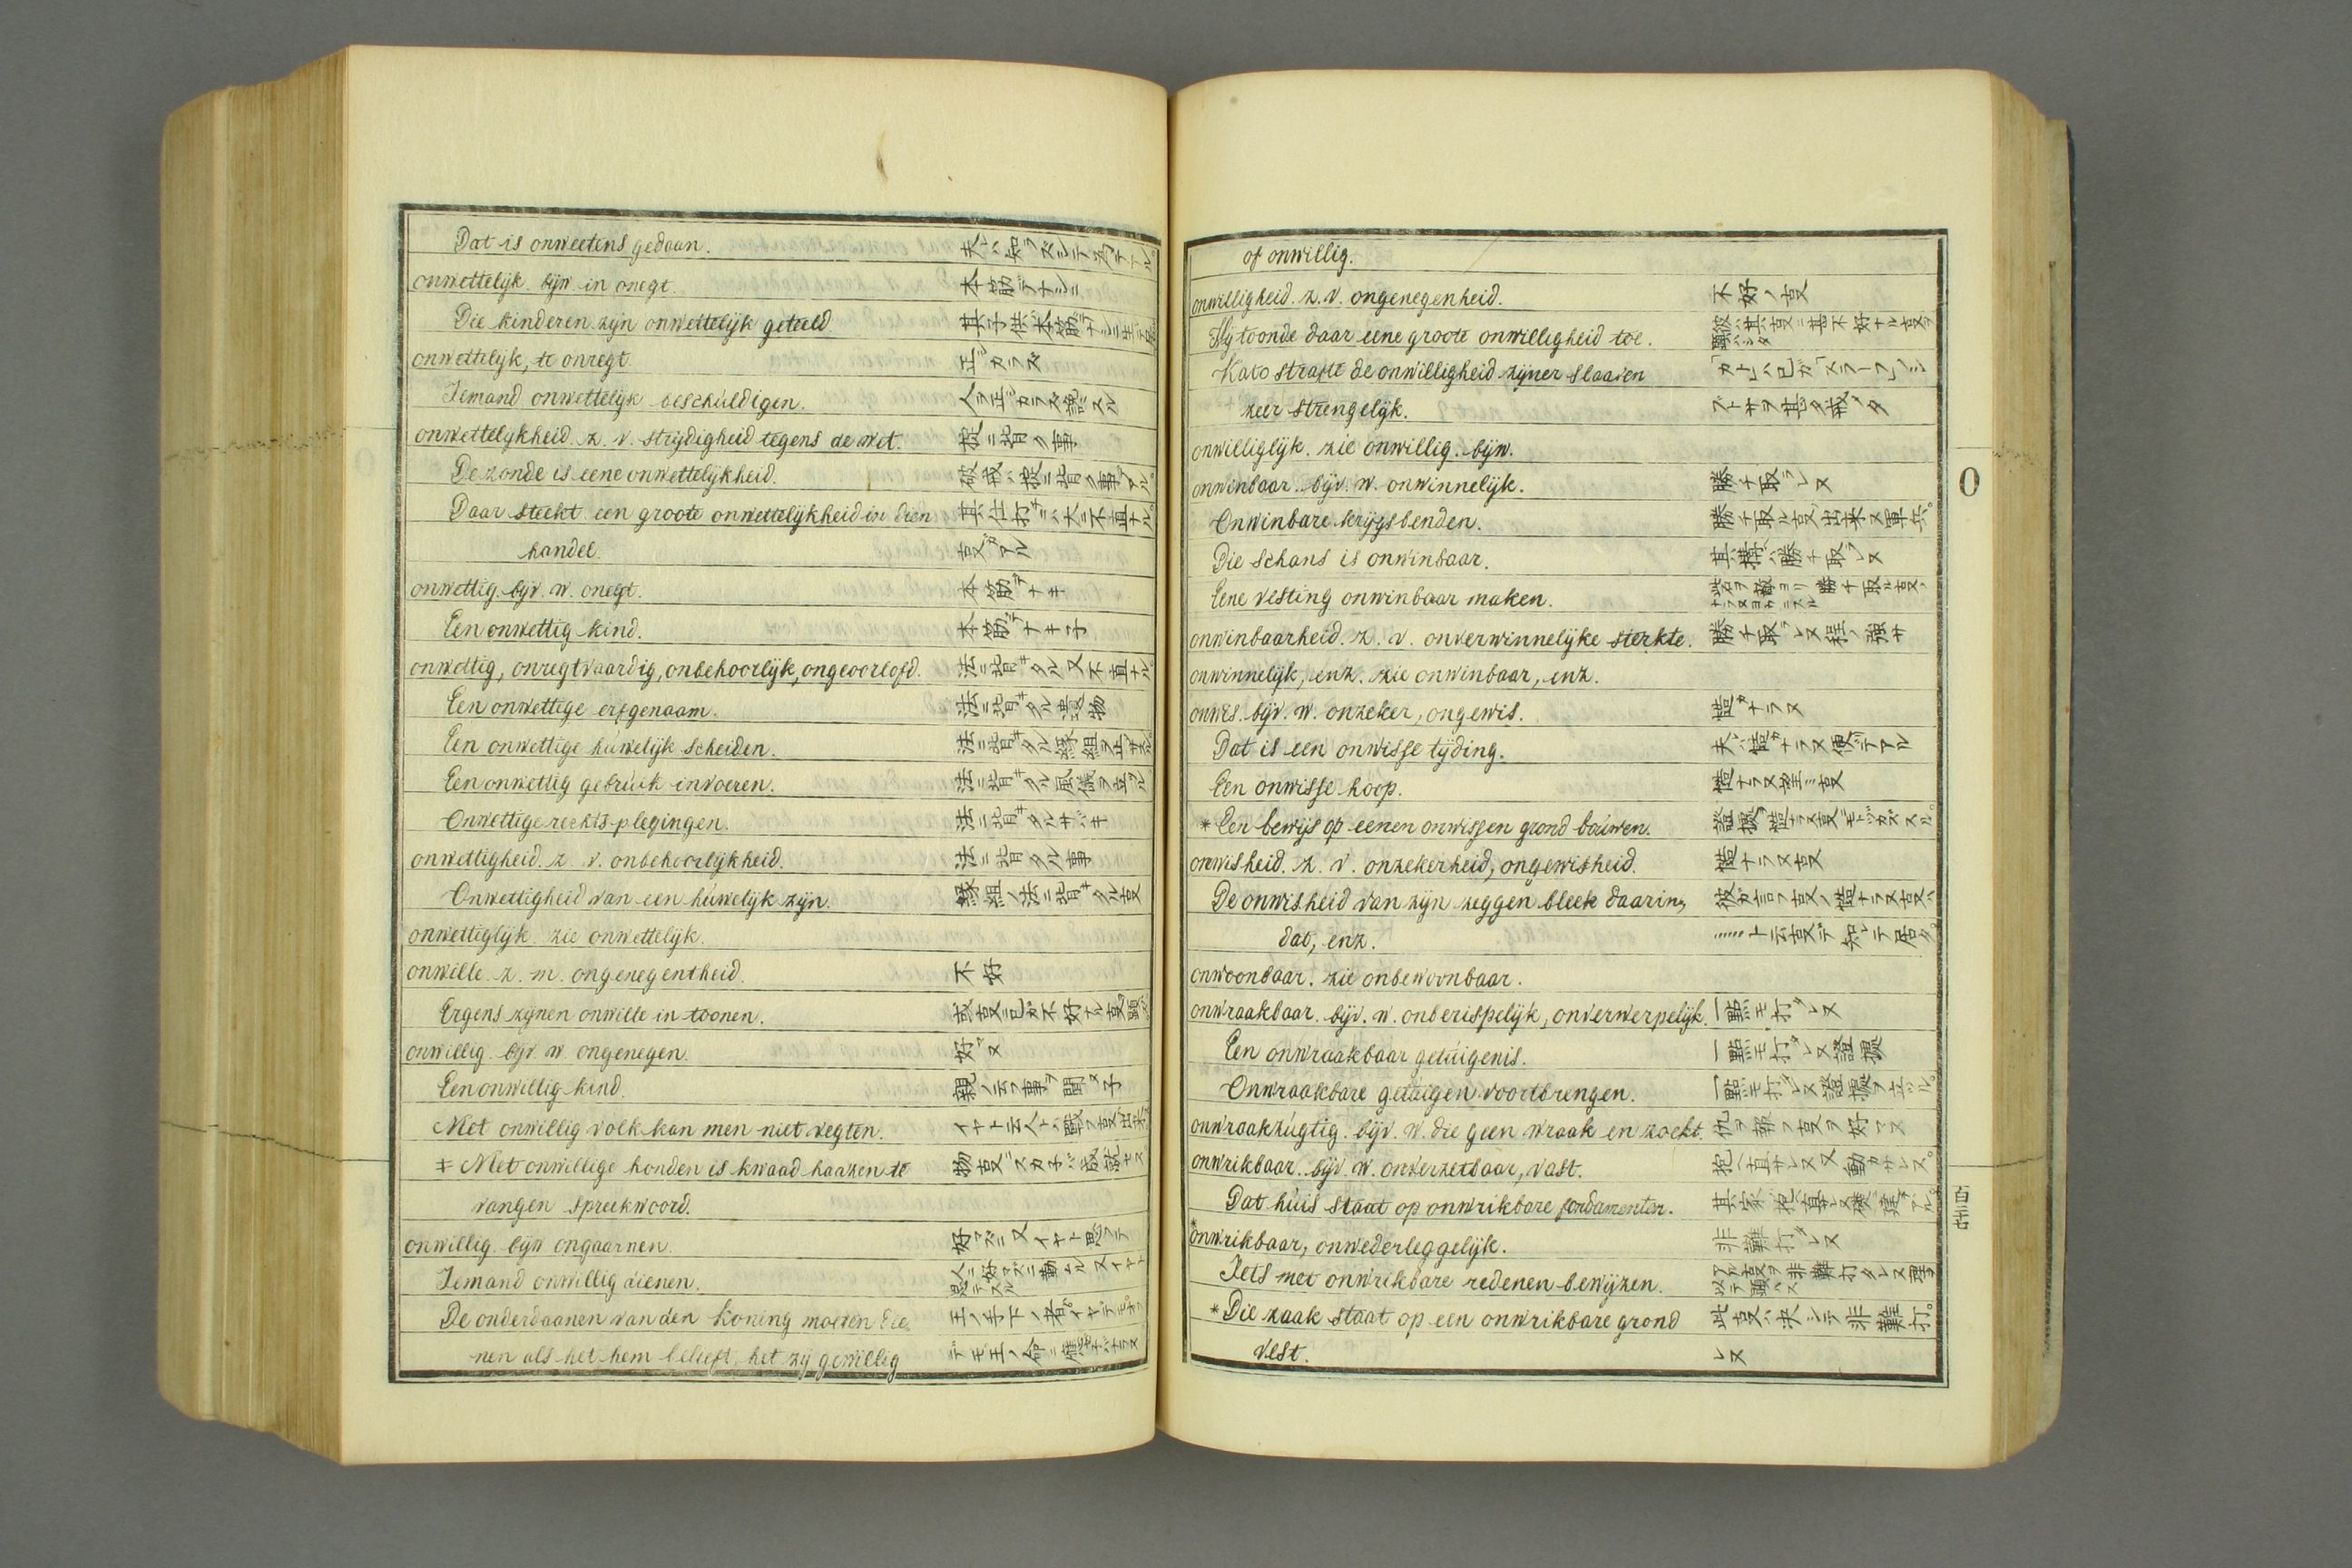 Dat is onweetens gedaan. 夫ハ知ラズシテ為テアル。
onwettelijk. bijw. in onegt. 本筋デナシニ
Die kinderen zijn onwettelijk geteeld. 其子供ハ本筋デナシニ生テ居
onwettelijk, te onregt. 正シカラズ
Iemand onwettelijk beschuldigen. 人ヲ正シカラズ
onwettelijkheid. z. v. strijdigheid tegens de wet. 掟ニ背ク事
De zonde is eene onwettelijkheid. 破戒ハ掟ニ背ク事デアル。
Daar steekt een groote onwettelijkheid in dien 其仕打ニハ大ニ不直ナル。
handel. 㕝ガアル
onwettig. bijv. w. onegt. 本筋デナキ
Een onwettig kind. 本筋デナキ子
onwettig, onregtvaardig, onbehoorlijk, ongeoorlofd. 法ニ背キタル又不直ナル。
Een onwettige erfgenaam. 法ニ背キタル遺物
Een onwettige húwelijk scheiden. 法ニ背キタル縁組ヲ
Een onwettig gebrúik invoeren. 法ニ背キタル風儀ヲ立ル
Onwettige rechts-plegingen. 法ニ背キタルサバキ
onwettigheid. z. v. onbehoorlijkheid. 法ニ背タル事
Onwettigheid van een húwelijk zijn. 縁組ノ法ニ背キタル㕝
onwettiglijk. zie onwettelijk.
onwille. z. m. ongenegentheid. 不好
Ergens zijnen onwille in toonen. 或㕝ニ己ガ不好ナル㕝ヲ顕ス
onwillig. bijv. w. ongenegen. 好マヌ
Een onwillig kind. 親ノ云フ事ヲ聞ヌ子
Met onwillig volk kan men niet vegten. イヤト云人トハ戦フ㕝出来ヌ
‡ Met onwillige honden is kwaad haazen te 物㕝ニスカネバ成就セズ
vangen spreekwoord.
onwillig. bijw. ongaarnen. 好マズニ又イヤト思フテ
Iemand onwillig dienen. 人ニ好マズニ勤ムル又イヤト思テスル
De onderdaanen van den Koning moeten die 王ノ手下ノ者ハイヤデモオフ
nen als het hem belieft, het zij gewillig デモ王ノ命ニ應セネバナラヌ
of onwillig.
onwilligheid. z. v. ongenegenheid. 不好ノ㕝
Hij toonde daar eene groote onwilligheid toe. 彼ハ其㕝ニ甚不好ナル㕝ヲ顕ハシタ
Kato strafte de onwilligheid zijner slaaven 「カトー」ハ己ガ「スラーフ」ノ
zeer strengelijk. ヲ甚タ戒メタ
onwilliglijk. zie onwillig. bijw.
onwinbaar. bijv. w. onwinnelijk. 勝チ取ラレヌ
Onwinbare krijgsbenden. 勝チ取ル㕝ノ出来ヌ軍兵。
Die schans is onwinbaar. 其搆ハ勝チ取ラレヌ
Eene vesting onwinbaar maken. 砦ヲ敵ヨリ勝チ取ル㕝ノナラヌヨフニスル
onwinbaarheid. z. v. onverwinnelijke sterkte. 勝チ取ラレヌ程ノ強サ
onwinnelijk, enz. zie onwinbaar, enz.
onwis. bijv. w. onzeker, ongewis. 慥カナラヌ
Dat is een onwisse tijding. 夫ハ慥カナラヌ便デアル
Een onwisse hoop. 慥ナラヌ望ミ㕝
* Een bewijs op eenen onwissen grond boúwen. 證據ヲ慥ナラヌ㕝ニモトヅカズスル。
onwisheid. z. v. onzekerheid, ongewisheid. 慥ナラヌ㕝
De onwisheid van zijn zeggen bleek daarin, 彼ガ言フ㕝ノ慥ナラヌ㕝ハ
dat, enz. ……ト云㕝デ知レテ居タ。
onwoonbaar. zie onbewoonbaar.
onwraakbaar. bijv. w. onberispelijk, onverwerpelijk. 一點モ打タレヌ
Een onwraakbaar getúigenis. 一點モ打タレヌ證據
Onwraakbare getúigen voortbrengen. 一點モ打レヌ證據ヲ立ツル。
onwraakzúgtig. bijv. w. die geen wraak en zoekt. 仇ヲ報フ㕝ヲ好マヌ
onwrikbaar. bijv. w. onverzetbaar, vast. 抱ヘ直サレヌ又動カサレヌ。
Dat húis staat op onwrikbare fondamenten. 其家ハ抱ヘ直サレヌ礎ニ建テアル。
* onwrikbaar, onwederleggelijk. 非難打タレヌ
Iets met onwrikbare redenen bewijzen. アル㕝ヲ非難打タレヌ理ヲ以テ顕ハス
* Die zaak staat op een onwrikbare grond 此㕝ハ決シテ非難打。
vest. レヌ
O